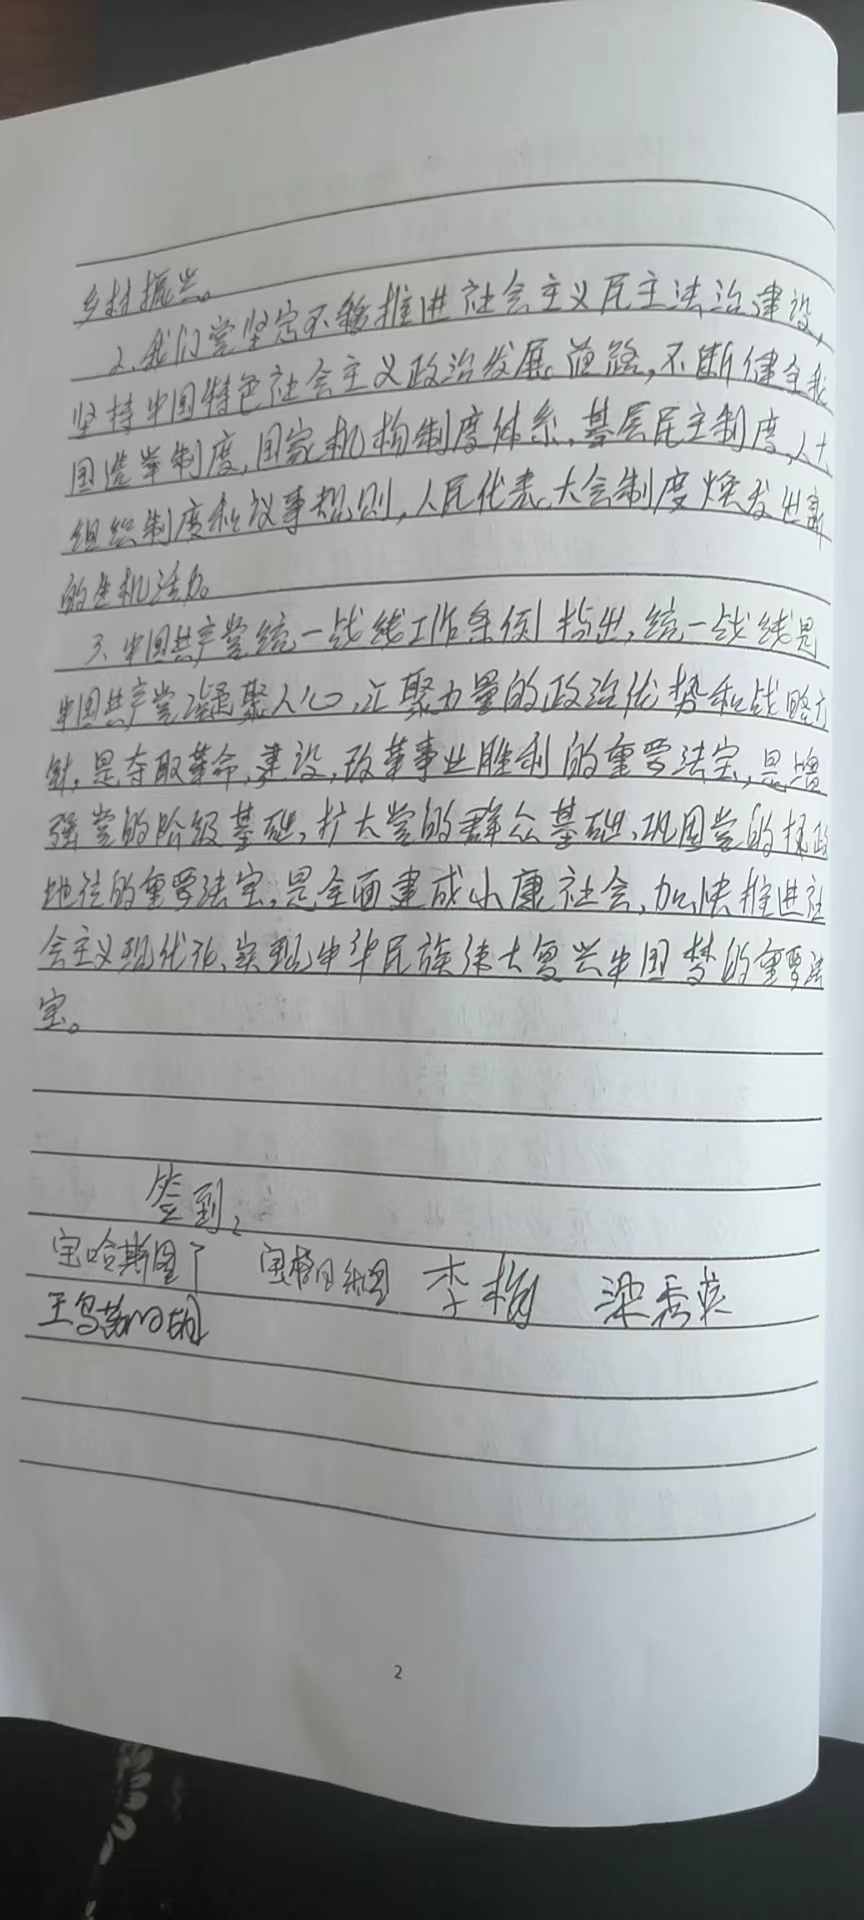 乡村振兴。
2、我们党坚定不移推进社会主义民主法治建设,
坚持中国特色社会主义政治发展道路,不断健全我
国选举制度、国家机构制度体系、基层民主制度、人大
组织制度和议事规则,人民代表大会制度焕发出新
的生机活力。
3、中国共产党统一战线工作条例指出,统一战线是
中国共产党凝聚人心、汇聚力量的政治优势和战略方
针,是夺取革命、建设、改革事业胜利的重要法宝,是增
强党的阶级基础、扩大党的群众基础、巩固党的执政
地位的重要法宝,是全面建成小康社会、加快推进社
会主义现代化、实现中华民族伟大复兴中国梦的重要法
宝。
签到:
宝哈斯图丫 李梅 梁秀英
2